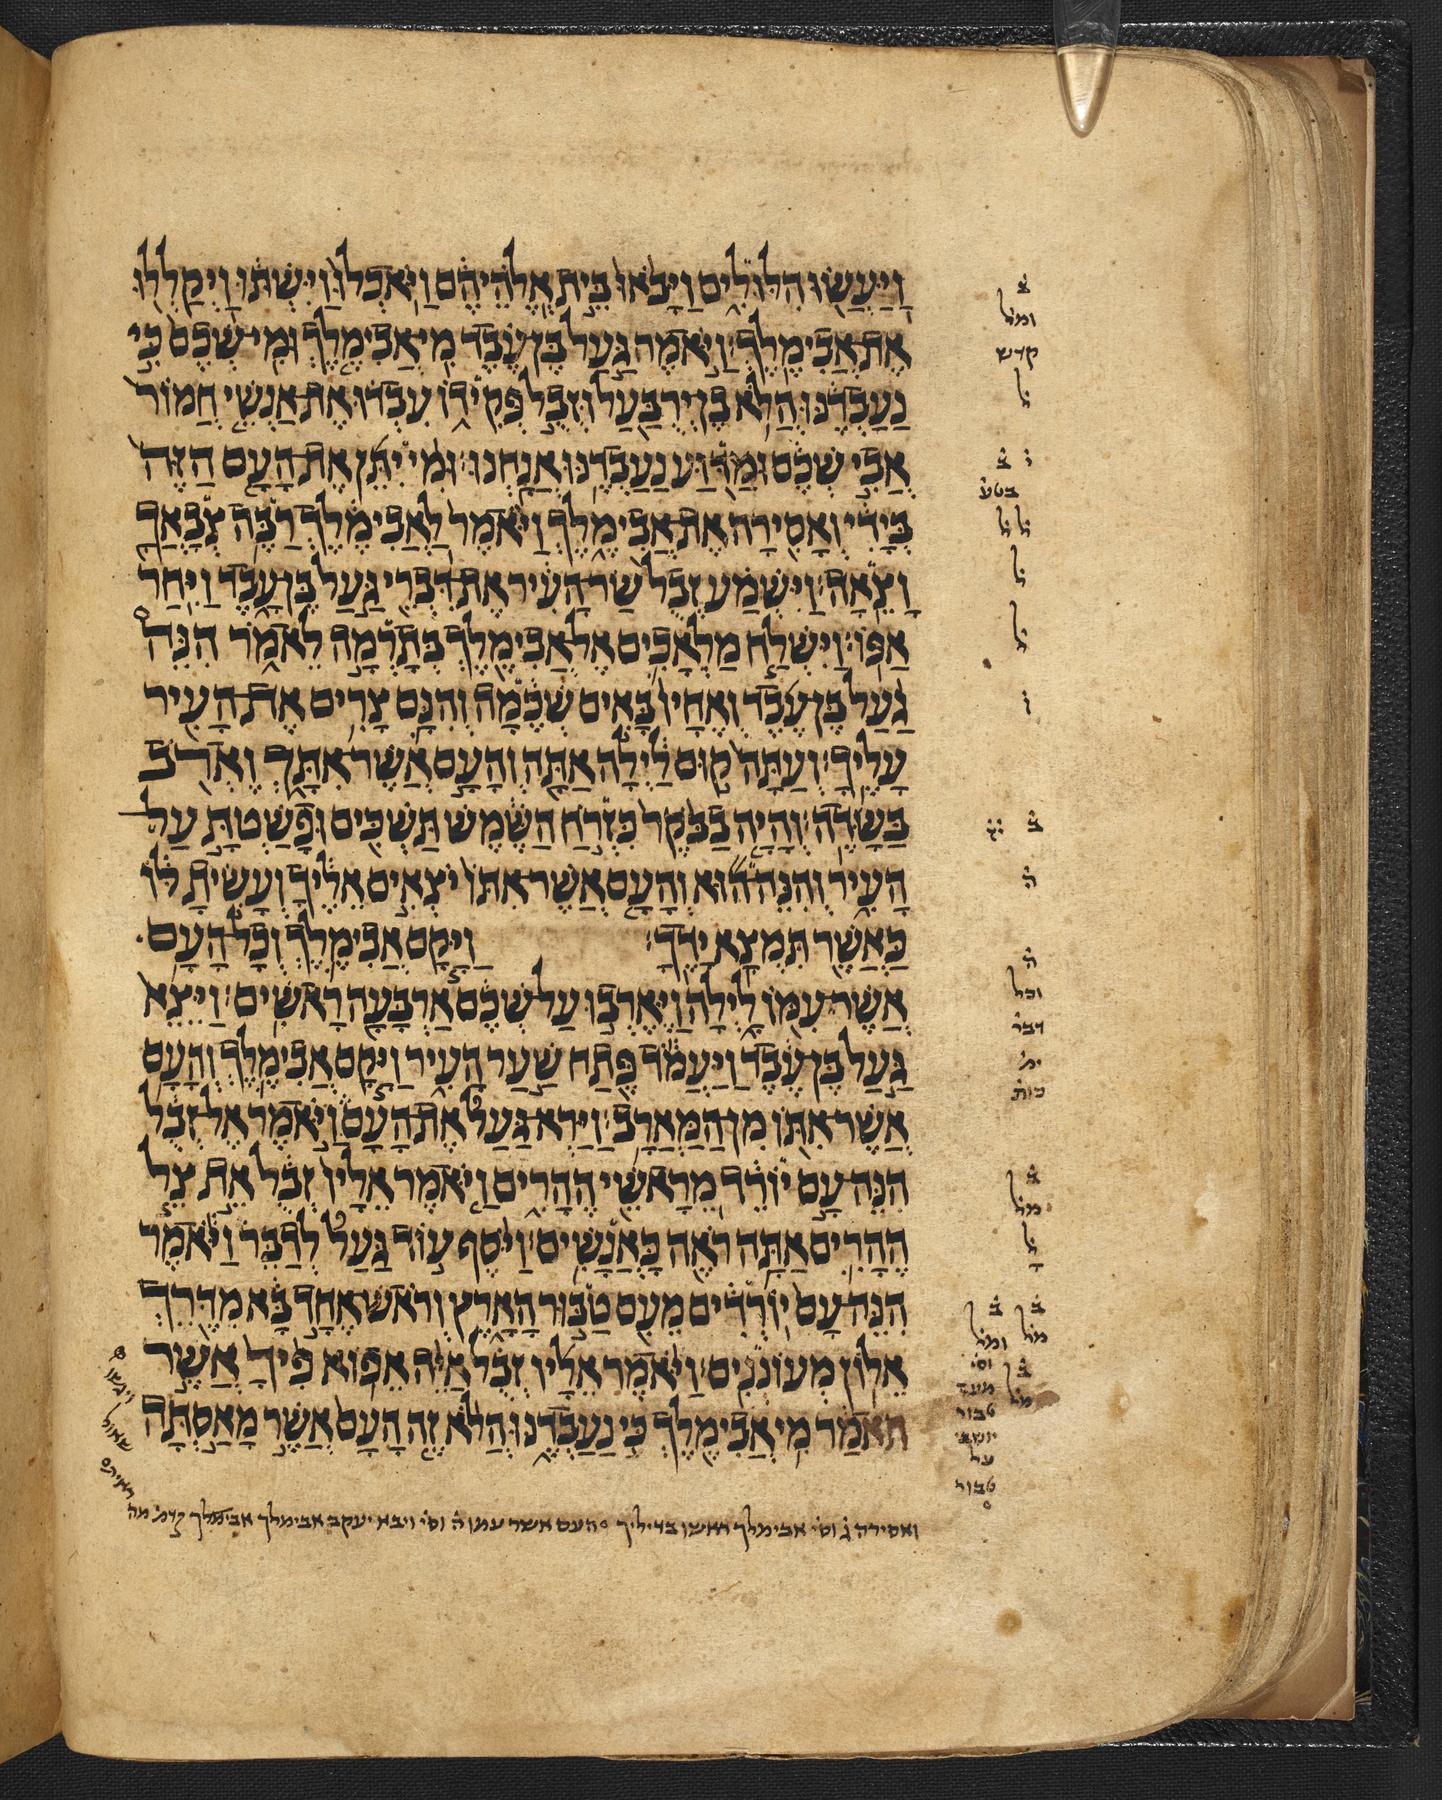 וַיַּעֲשׂוּ הִלּוּלִים וַיָּבֹאוּ בֵּית אֱלֹהֵיהֶם וַיֹּאכְלוּ וַיִּשְׁתּוּ וַיְקַלְלוּ
אֶת אֲבִימֶלֶךְ׃ וַיֹּאמֶר גַּעַל בֶּן עֶבֶד מִי אֲבִימֶלֶךְ וּמִי שְׁכֶם כִּי
נַעַבְדֶנּוּ הֲלֹא בֶן יְרֻבַּעַל וּזְבֻל פְּקִידוֹ עִבְדוּ אֶת אַנְשֵׁי חֲמוֹר
אֲבִי שְׁכֶם וּמַדּוּעַ נַעַבְדֶנּוּ אֲנָחְנוּ׃ וּמִי יִתֵּן אֶת הָעָם הַזֶּה
בְּיָדִי וְאָסִירָה אֶת אֲבִימֶלֶךְ וַיֹּאמֶר לַאֲבִימֶלֶךְ רַבֶּה צְבָאֲךָ
וָצֵאָה׃ וַיִּשְׁמַע זְבֻל שַׂר הָעִיר אֶת דִּבְרֵי גַּעַל בֶּן עָבֶד וַיִּחַר
אַפּוֹ׃ וַיִּשְׁלַח מַלְאָכִים אֶל אֲבִימֶלֶךְ בְּתָרְמָה לֵאמֹר הִנֵּה
גַעַל בֶּן עֶבֶד וְאֶחָיו בָּאִים שְׁכֶמָה וְהִנָּם צָרִים אֶת הָעִיר
עָלֶיךָ׃ וְעַתָּה קוּם לַיְלָה אַתָּה וְהָעָם אֲשֶׁר אִתָּךְ וֶאֱרֹב
בַּשָּׂדֶה׃ וְהָיָה בַבֹּקֶר כִּזְרֹחַ הַשֶּׁמֶשׁ תַּשְׁכִּים וּפָשַׁטְתָּ עַל
הָעִיר וְהִנֵּה הוּא וְהָעָם אֲשֶׁר אִתּוֹ יֹצְאִים אֵלֶיךָ וְעָשִׂיתָ לּוֹ
כַּאֲשֶׁר תִּמְצָא יָדֶךָ׃ וַיָּקָם אֲבִימֶלֶךְ וְכָל הָעָם
אֲשֶׁר עִמּוֹ לָיְלָה וַיֶּאֶרְבוּ עַל שְׁכֶם אַרְבָּעָה רָאשִׁים׃ וַיֵּצֵא
גַּעַל בֶּן עֶבֶד וַיַּעֲמֹד פֶּתַח שַׁעַר הָעִיר וַיָּקָם אֲבִימֶלֶךְ וְהָעָם
אֲשֶׁר אִתּוֹ מִן הַמַּאְרָב׃ וַיַּרְא גַּעַל אֶת הָעָם וַיֹּאמֶר אֶל זְבֻל
הִנֵּה עָם יוֹרֵד מֵרָאשֵׁי הֶהָרִים וַיֹּאמֶר אֵלָיו זְבֻל אֵת צֵל
הֶהָרִים אַתָּה רֹאֶה כָּאֲנָשִׁים׃ וַיֹּסֶף עוֹד גַּעַל לְדַבֵּר וַיֹּאמֶר
הִנֵּה עָם יוֹרְדִים מֵעִם טַבּוּר הָאָרֶץ וְרֹאשׁ אֶחָד בָּא מִדֶּרֶךְ
אֵלוֹן מְעוֹנְנִים׃ וַיֹּאמֶר אֵלָיו זְבֻל אַיֵּה אֵפוֹא פִיךָ אֲשֶׁר
תֹּאמַר מִי אֲבִימֶלֶךְ כִּי נַעַבְדֶנּוּ הֲלֹא זֶה הָעָם אֲשֶׁר מָאַסְתָּה
ומל
קדש
ל
ו ב
בטע
ל ל
ל
ל
ו
ב
ה
ה
וכל
דבר
ית
כות
ב
מל
ל
ב ב
מל ומל
וסי ב
מל
טבור
יושבי
על
טבור
ואסירה ג וסי אבימלך ראשו בדיליך העם אשר עמו ה וסי ויבא יעקב אבימלך אבימלך מה